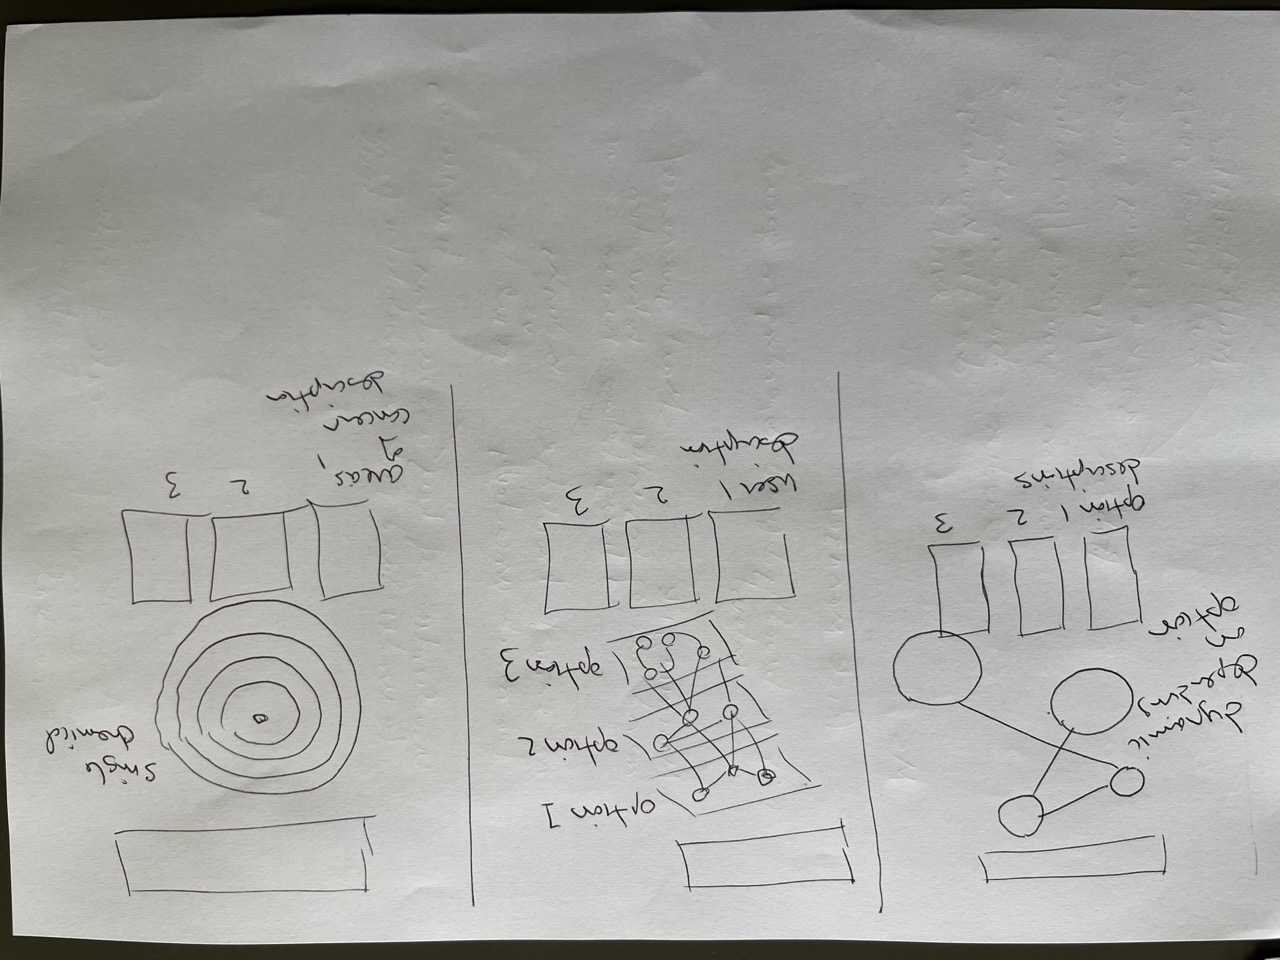 dynamic
depending
on
option
option 1 2 3
descriptions
option 1
option 2
option 3
user 1 2 3
description
single
chemical
areas 1 2 3
of
concern
description